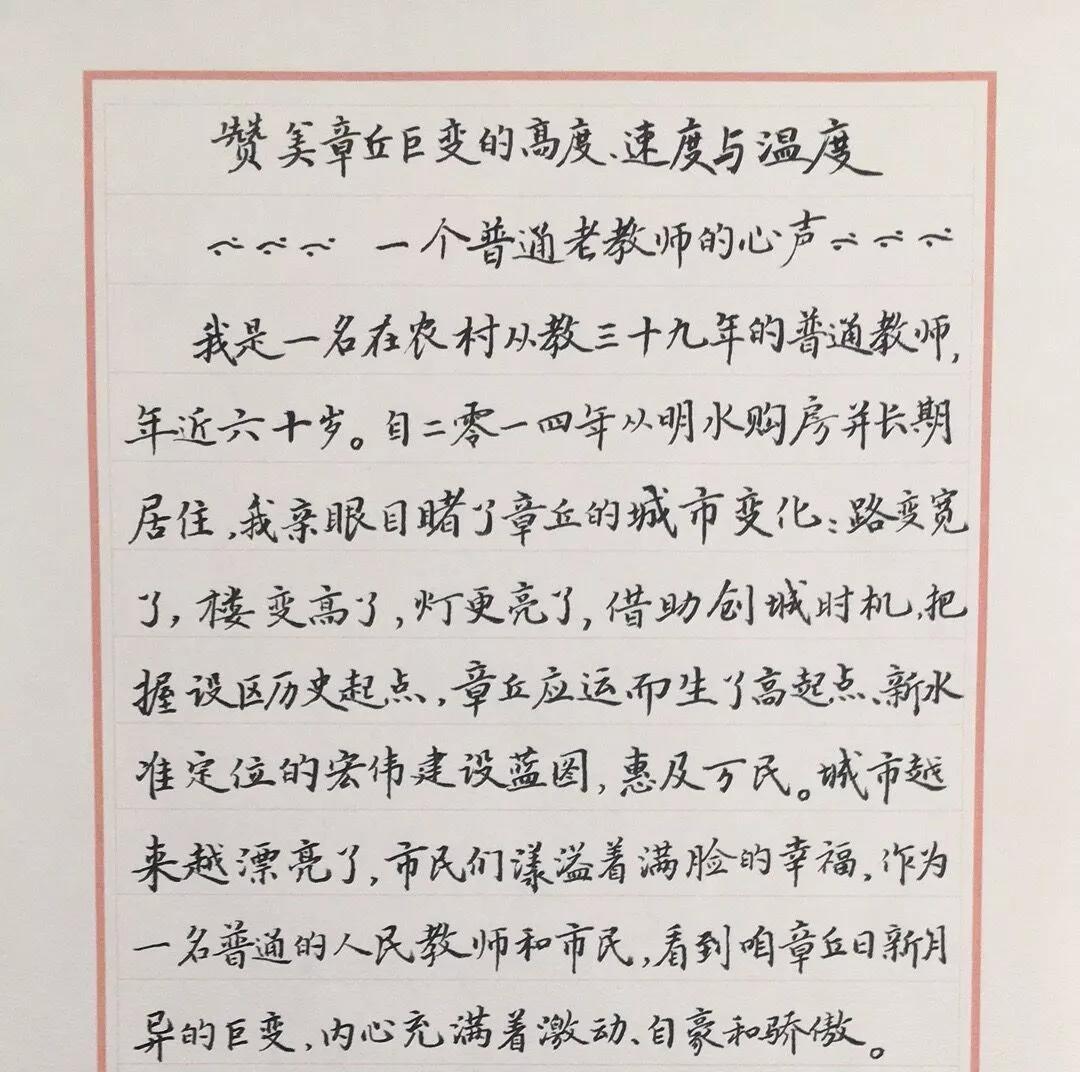 赞美章丘巨变的高度、速度与温度
~~~ 一个普通老教师的心声~~~
我是一名在农村从教三十九年的普通教师,
年近六十岁。自二零一四年从明水购房并长期
居住,我亲眼目睹了章丘的城市变化:路变宽
了,楼变高了,灯更亮了,借助创城时机,把
握设区历史起点,章丘应运而生了高起点、新水
准定位的宏伟建设蓝图,惠及万民。城市越
来越漂亮了,市民们漾溢着满脸的幸福,作为
一名普通的人民教师和市民,看到咱章丘日新月
异的巨变,内心充满着激动、自豪和骄傲。